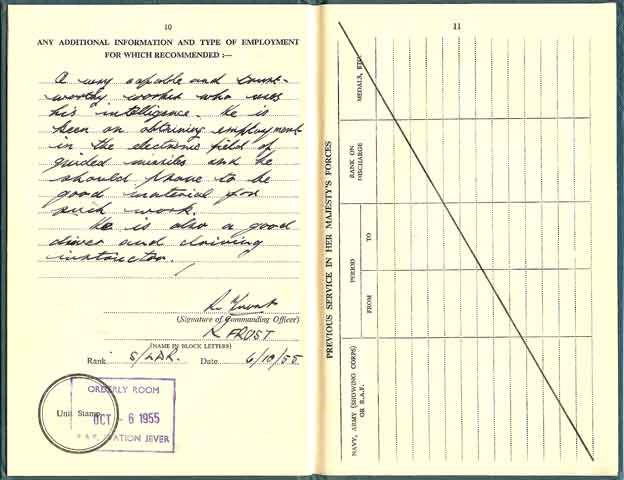 10
ANY ADDITIONAL INFORMATION AND TYPE OF EMPLOYMENT
FOR WHICH RECOMMENDED :—
A very capable and trust-
worthy worker who uses
his intelligence. He is
keen on obtaining employment
in the electronic field of
guided missiles and he
should prove to be
good material for
such work.
He is also a good
driver and driving
instructor.
(Signature of Commanding Officer)
R FROST
(NAME IN BLOCK LETTERS)
Rank S/LDR. Date 6/10/55
ORDERLY ROOM
Unit Stamp
OCT - 6 1955
R.A.F. STATION JEVER
11
PREVIOUS SERVICE IN HER MAJESTY'S FORCES
NAVY, ARMY (SHOWING CORPS)
OR R.A.F.
PERIOD
FROM
TO
RANK ON
DISCHARGE
MEDALS, ETC.